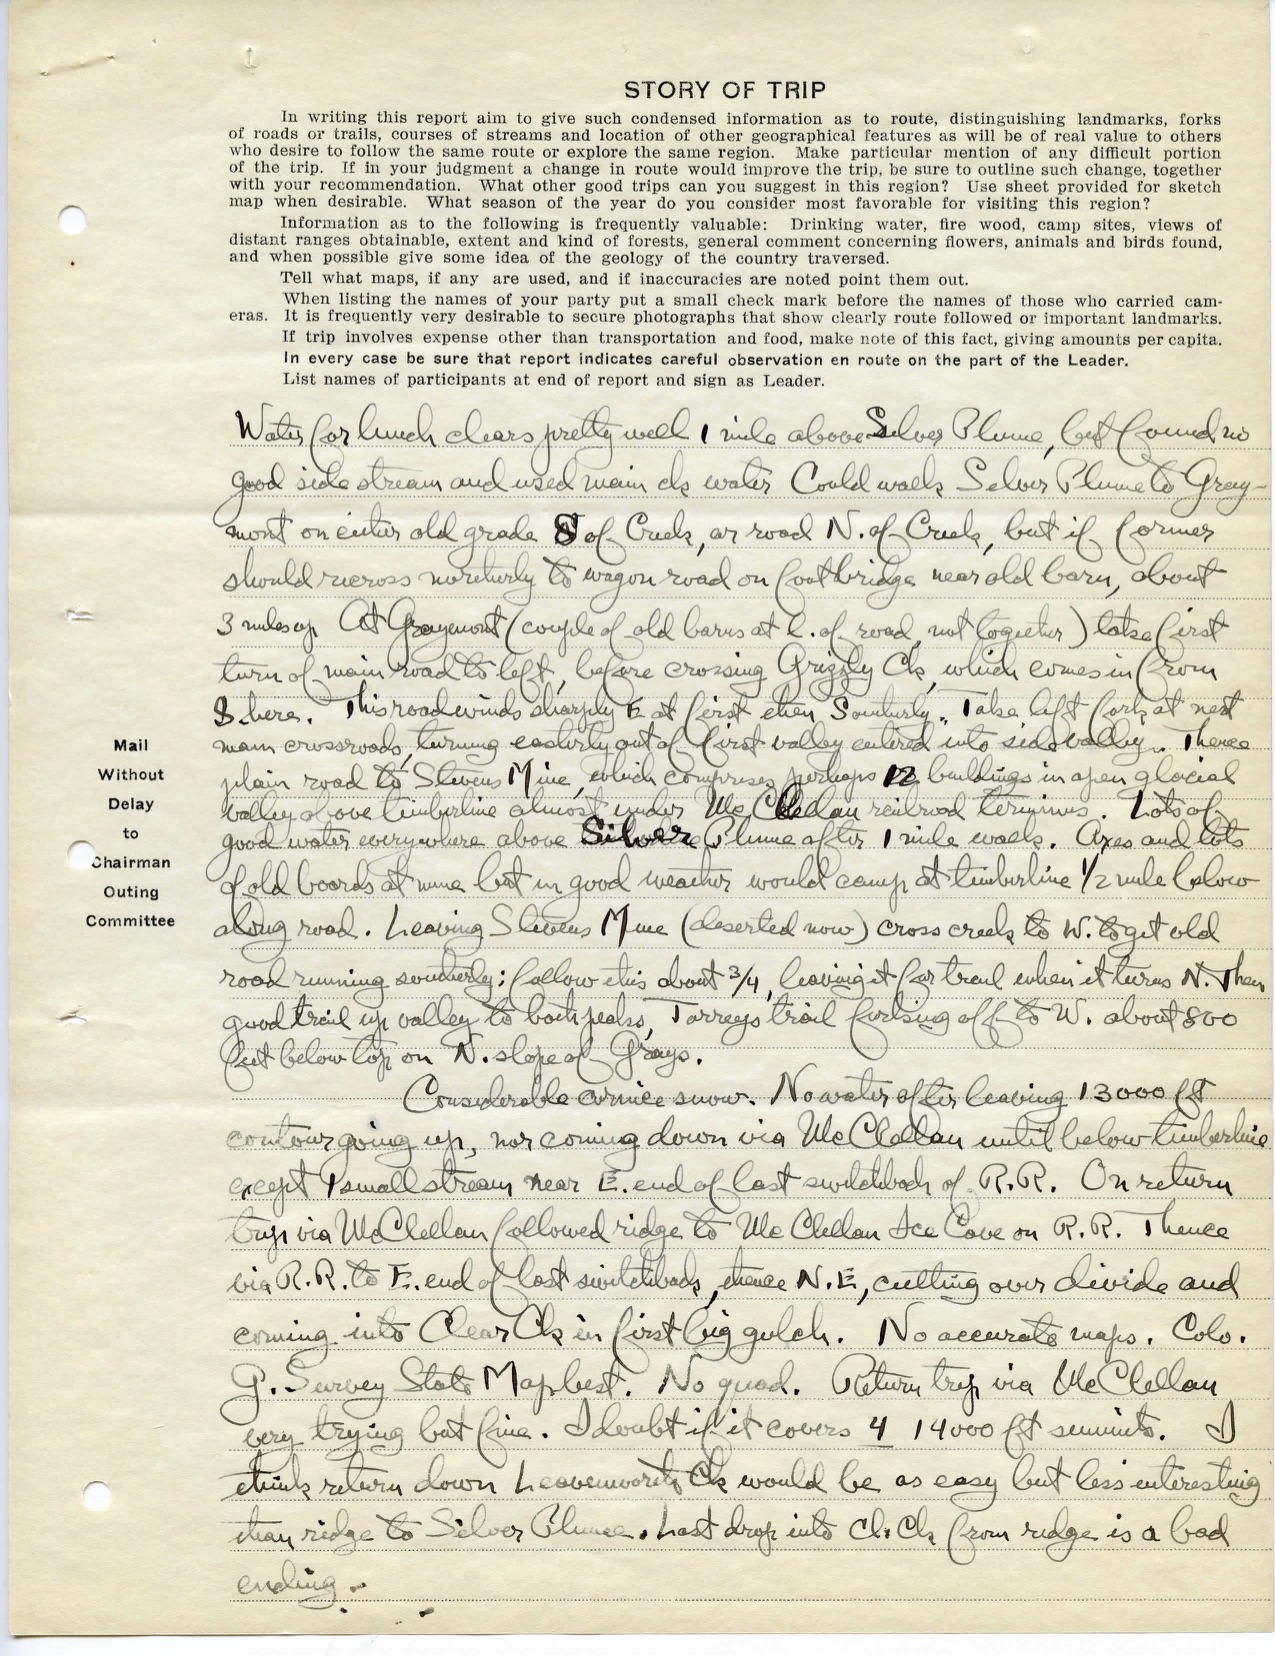 STORY OF TRIP
In writing this report aim to give such condensed information as to route, distinguishing landmarks, forks
of roads or trails, courses of streams and location of other geographical features as will be of real value to others
who desire to follow the same route or explore the same region. Make particular mention of any difficult portion
of the trip. If in your judgment a change in route would improve the trip, be sure to outline such change, together
with your recommendation. What other good trips can you suggest in this region? Use sheet provided for sketch
map when desirable. What season of the year do you consider most favorable for visiting this region?
Information as to the following is frequently valuable: Drinking water, fire wood, camp sites, views of
distant ranges obtainable, extent and kind of forests, general comment concerning flowers, animals and birds found,
and when possible give some idea of the geology of the country traversed.
Tell what maps, if any are used, and if inaccuracies are noted point them out.
When listing the names of your party put a small check mark before the names of those who carried cam-
eras. It is frequently very desirable to secure photographs that show clearly route followed or important landmarks.
If trip involves expense other than transportation and food, make note of this fact, giving amounts per capita.
In every case be sure that report indicates careful observation en route on the part of the Leader.
List names of participants at end of report and sign as Leader.
Water for lunch clears pretty well 1 mile above Silver Plume, but found no
good side stream and used main ck water Could walk Silver Plume to Gray-
mont on either old grade S of Creek, or road N. of Creek, but if former
should recross northerly to wagon road on footbridge near old barn, about
3 miles up At Graymont (couple of old barns at l. of road, not together) take first
turn of main road to left, before crossing Grizzly Ck, which comes in from
S. here. This road winds sharply E at first then Southerly. Take left fork at next
main crossroads, turning easterly out of first valley entered into side valley. Thence
plain road to Stevens Mine, which comprises perhaps 12 buildings in open glacial
valley above timberline almost under McClellan railroad terminus. Lots of
good water everywhere above Silver Plume after 1 mile walk. Axes and lots
of old boards at mine but in good weather would camp at timberline 1/2 mile below
along road. Leaving Stevens Mine (deserted now) cross creek to W. to get old
road running southerly; follow this about 3/4, leaving it for trail when it turns N. Then
good trail up valley to both peaks, Torreys trail forking off to W. about 800
feet below top on N. slope of Grays.
Considerable cornice snow. No water after leaving 13000 ft
contour going up, nor coming down via McClellan until below timberline
except 1 small stream near E. end of last switchback of R.R. On return
trip via McClellan followed ridge to McClellan Ice Cave on R.R. Thence
via R.R. to E. end of last switchback, thence N.E, cutting over divide and
coming into Clear Ck in first big gulch. No accurate maps. Colo.
G. Survey State Map best. No quad. Return trip via McClellan
very trying but fine. I doubt if it covers 4 14000 ft summits. I
think return down Leavenworth Ck would be as easy but less interesting
than ridge to Silver Plume. Last drop into Cl. Ck from ridge is a bad
ending.
Mail
Without
Delay
to
Chairman
Outing
Committee